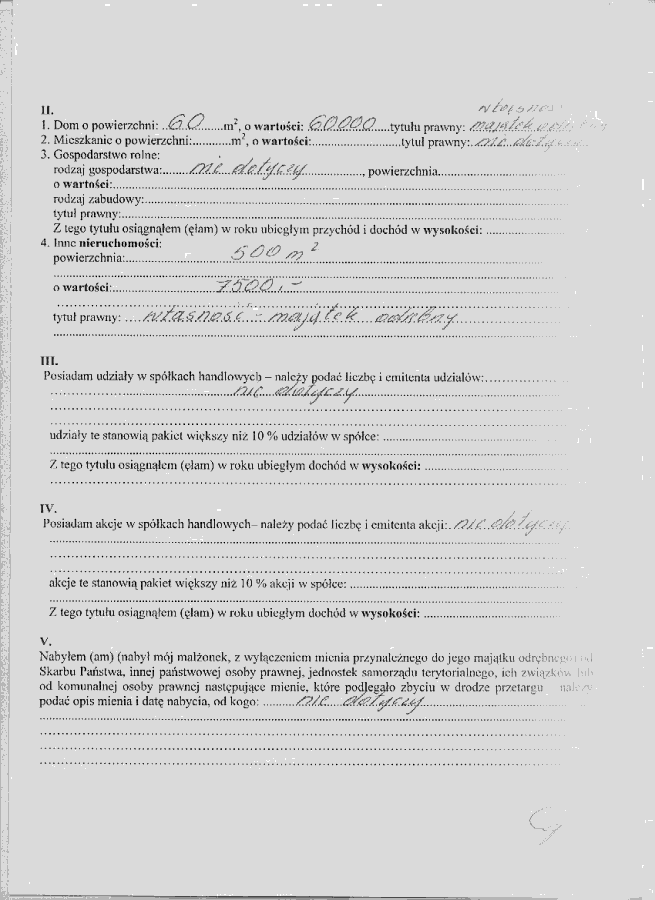 II.
własność
1. Dom o powierzchni: ..60......m², o wartości: 60000....tytułu prawny: majątek odrębny
2. Mieszkanie o powierzchni:...........m², o wartości:...........................tytuł prawny: nie dotyczy
3. Gospodarstwo rolne:
rodzaj gospodarstwa:.......nie dotyczy................, powierzchnia................................
o wartości:..............................................................
rodzaj zabudowy:..............................................................
tytuł prawny:..............................................................
Z tego tytułu osiągnąłem (ęłam) w roku ubiegłym przychód i dochód w wysokości: ......................
4. Inne nieruchomości:
powierzchnia:..........500 m²..............................
o wartości:..........7500,-..............................
tytuł prawny: ....własność - majątek odrębny..............................
III.
Posiadam udziały w spółkach handlowych – należy podać liczbę i emitenta udziałów:....................
nie dotyczy
udziały te stanowią pakiet większy niż 10 % udziałów w spółce: ..............................
Z tego tytułu osiągnąłem (ęłam) w roku ubiegłym dochód w wysokości: ..............................
IV.
Posiadam akcje w spółkach handlowych– należy podać liczbę i emitenta akcji:. nie dotyczy
akcje te stanowią pakiet większy niż 10 % akcji w spółce: ..............................
Z tego tytułu osiągnąłem (ęłam) w roku ubiegłym dochód w wysokości: ..............................
V.
Nabyłem (am) (nabył mój małżonek, z wyłączeniem mienia przynależnego do jego majątku odrębnego) od
Skarbu Państwa, innej państwowej osoby prawnej, jednostek samorządu terytorialnego, ich związków lub
od komunalnej osoby prawnej następujące mienie, które podlegało zbyciu w drodze przetargu należy
podać opis mienia i datę nabycia, od kogo: .........nie dotyczy..............................